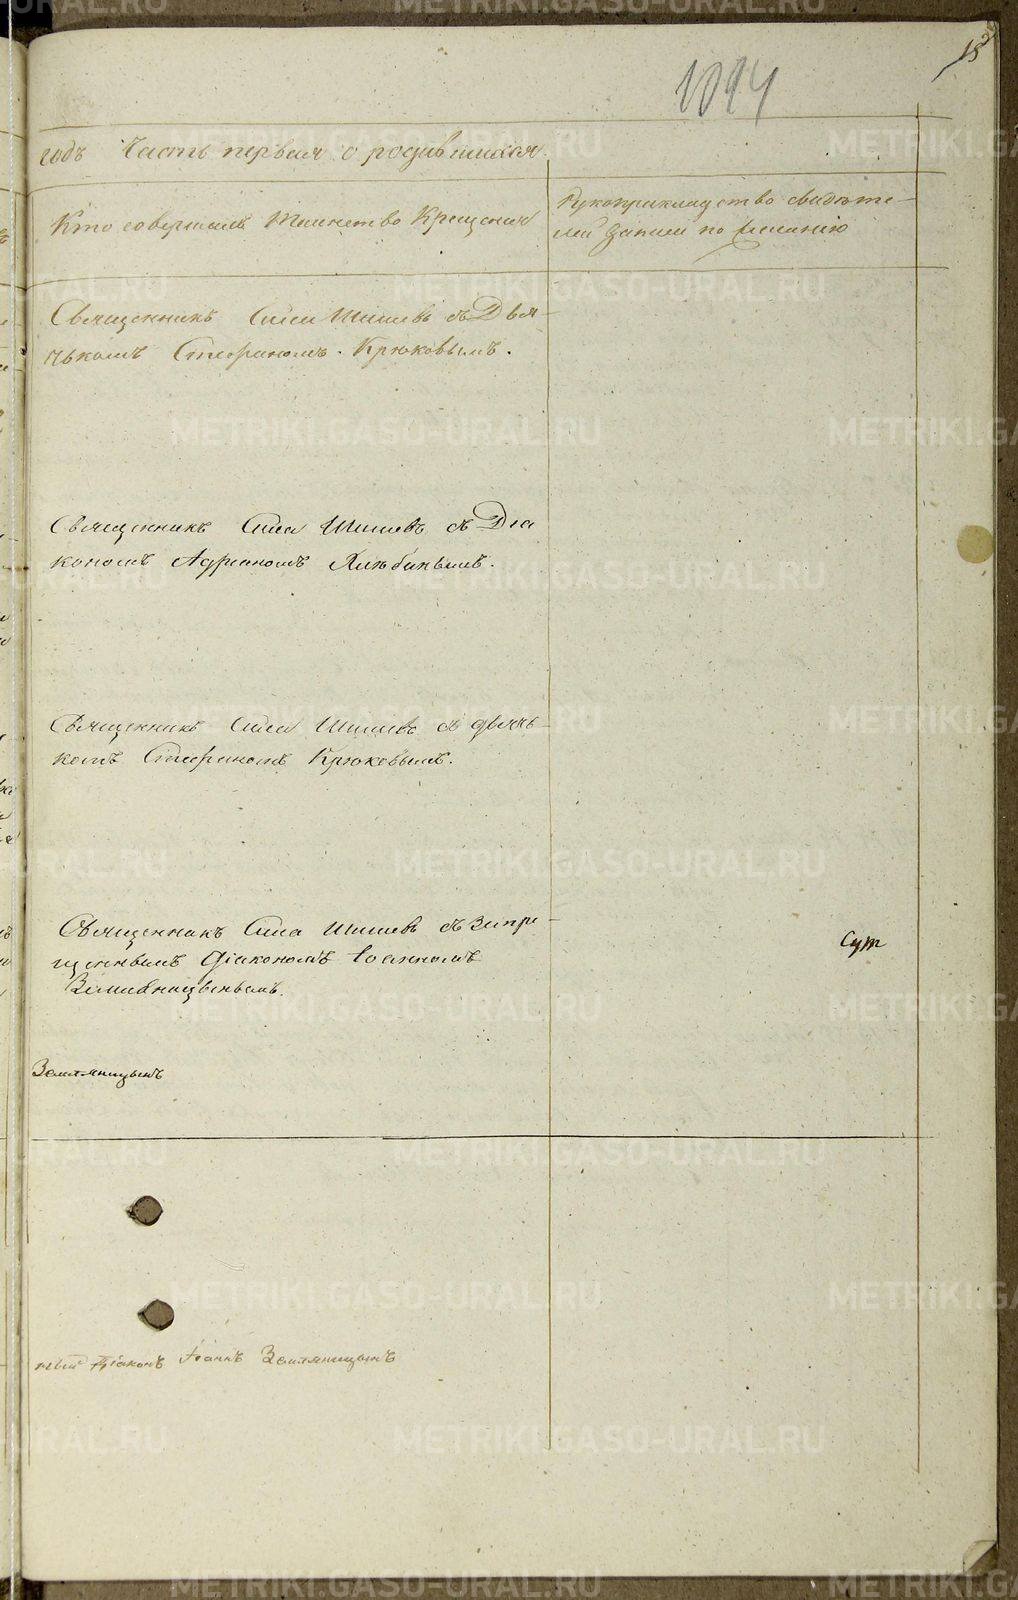 1094
15
годъ Часть первая о родившихся.
Кто совершалъ Таинство Крещения
Рукоприкладство свидѣте-
лей записи по желанію
Священникъ Сила Шишевъ съ Дья-
чькомъ Стефаномъ Крюковымъ.
Священникъ Сила Шишевъ съ Діа
кономъ Адріаномъ
Священникъ Сила Шишевъ съ дьячь-
комъ Стефаномъ Крюковымъ.
Священникъ Сила Шишевъ съ запре-
щеннымъ діакономъ Іоанномъ
Земляницынымъ.
Сут
Земляницынъ
ный Діаконъ Іоаннъ Земляницынъ
METRIKI.GASO-URAL.RU